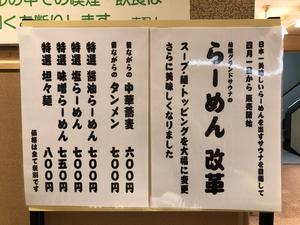 日本一美味しいらーめんを出すサウナを目指して
四月一日から 販売開始
船橋グランドサウナの
らーめん 改革
スープ・麺・トッピングを大幅に変更
さらに美味しくなりました
昔ながらの 中華蕎麦 六〇〇円
昔ながらの タンメン 七〇〇円
特選 醤油らーめん 七〇〇円
特選 塩らーめん 七〇〇円
特選 味噌らーめん 七五〇円
特選 坦々麺 八〇〇円
価格は全て税別です